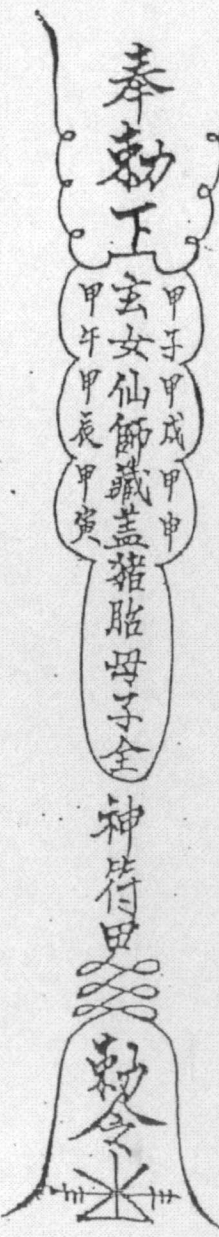 奉勅下
甲子甲戌甲申
玄女仙師藏盖豬胎母子全
甲午甲辰甲寅
神符甲
勅令